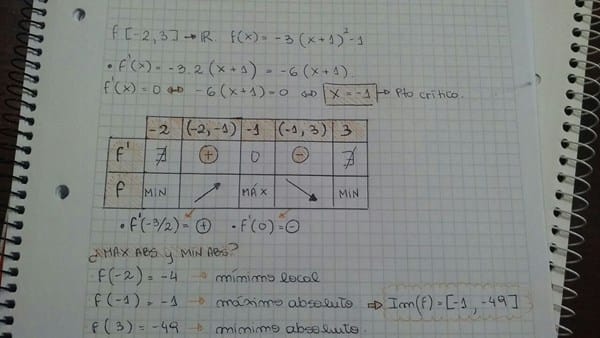 f [-2, 3] → ℝ. f(x) = -3(x+1)²-1
• f'(x) = -3.2(x+1) = -6(x+1).
f'(x) = 0 ⇔ -6(x+1) = 0 ⇔ x = -1 → Pto crítico.
-2 (-2,-1) -1 (-1, 3) 3
f' ∄ + 0 - ∄
f MIN ↗ MÁX ↘ MIN
• f'(-3/2) = + • f'(0) = -
¿MAX ABS y MIN ABS?
f(-2) = -4 → mínimo local
f(-1) = -1 → máximo absoluto ⇒ Im(f) = [-1, -49]
f(3) = -49 → mínimo absoluto.